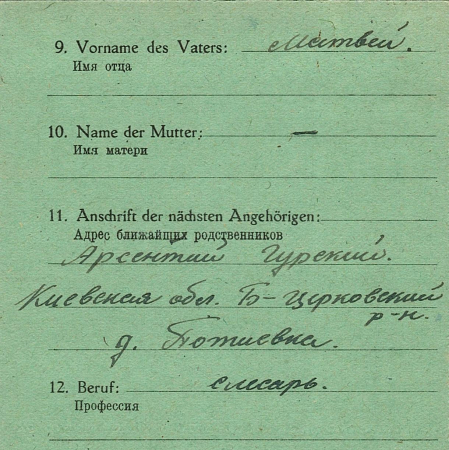 9. Vorname des Vaters: Матвей.
Имя отца
10. Name der Mutter: —
Имя матери
11. Anschrift der nächsten Angehörigen:
Адрес ближайщих родственников
Арсентий Гурский.
Киевская обл. Б-Церковский
р-н.
д. Потиевка.
12. Beruf: слесарь.
Профессия